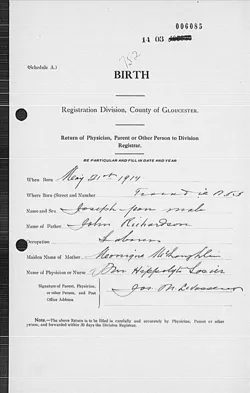 006085
14 03
752
(Schedule A.)
BIRTH
Registration Division, County of GLOUCESTER.
Return of Physician, Parent or Other Person to Division
Registrar.
BE PARTICULAR AND FILL IN DATE AND YEAR
When Born May 21st 1914
Where Born (Street and Number
Name and Sex Joseph Jean male
Name of Father John Richardson
Occupation Laborer
Maiden Name of Mother Monique McLaughlin
Name of Physician or Nurse Mrs Hippolyte
Signature of Parent, Physician,
or other Person, and Post
Office Address
Jos. M. Levasseur
NOTE.—The above Return is to be filled in carefully and accurately by Physician, Parent or other
person, and forwarded within 30 days the Division Registrar.